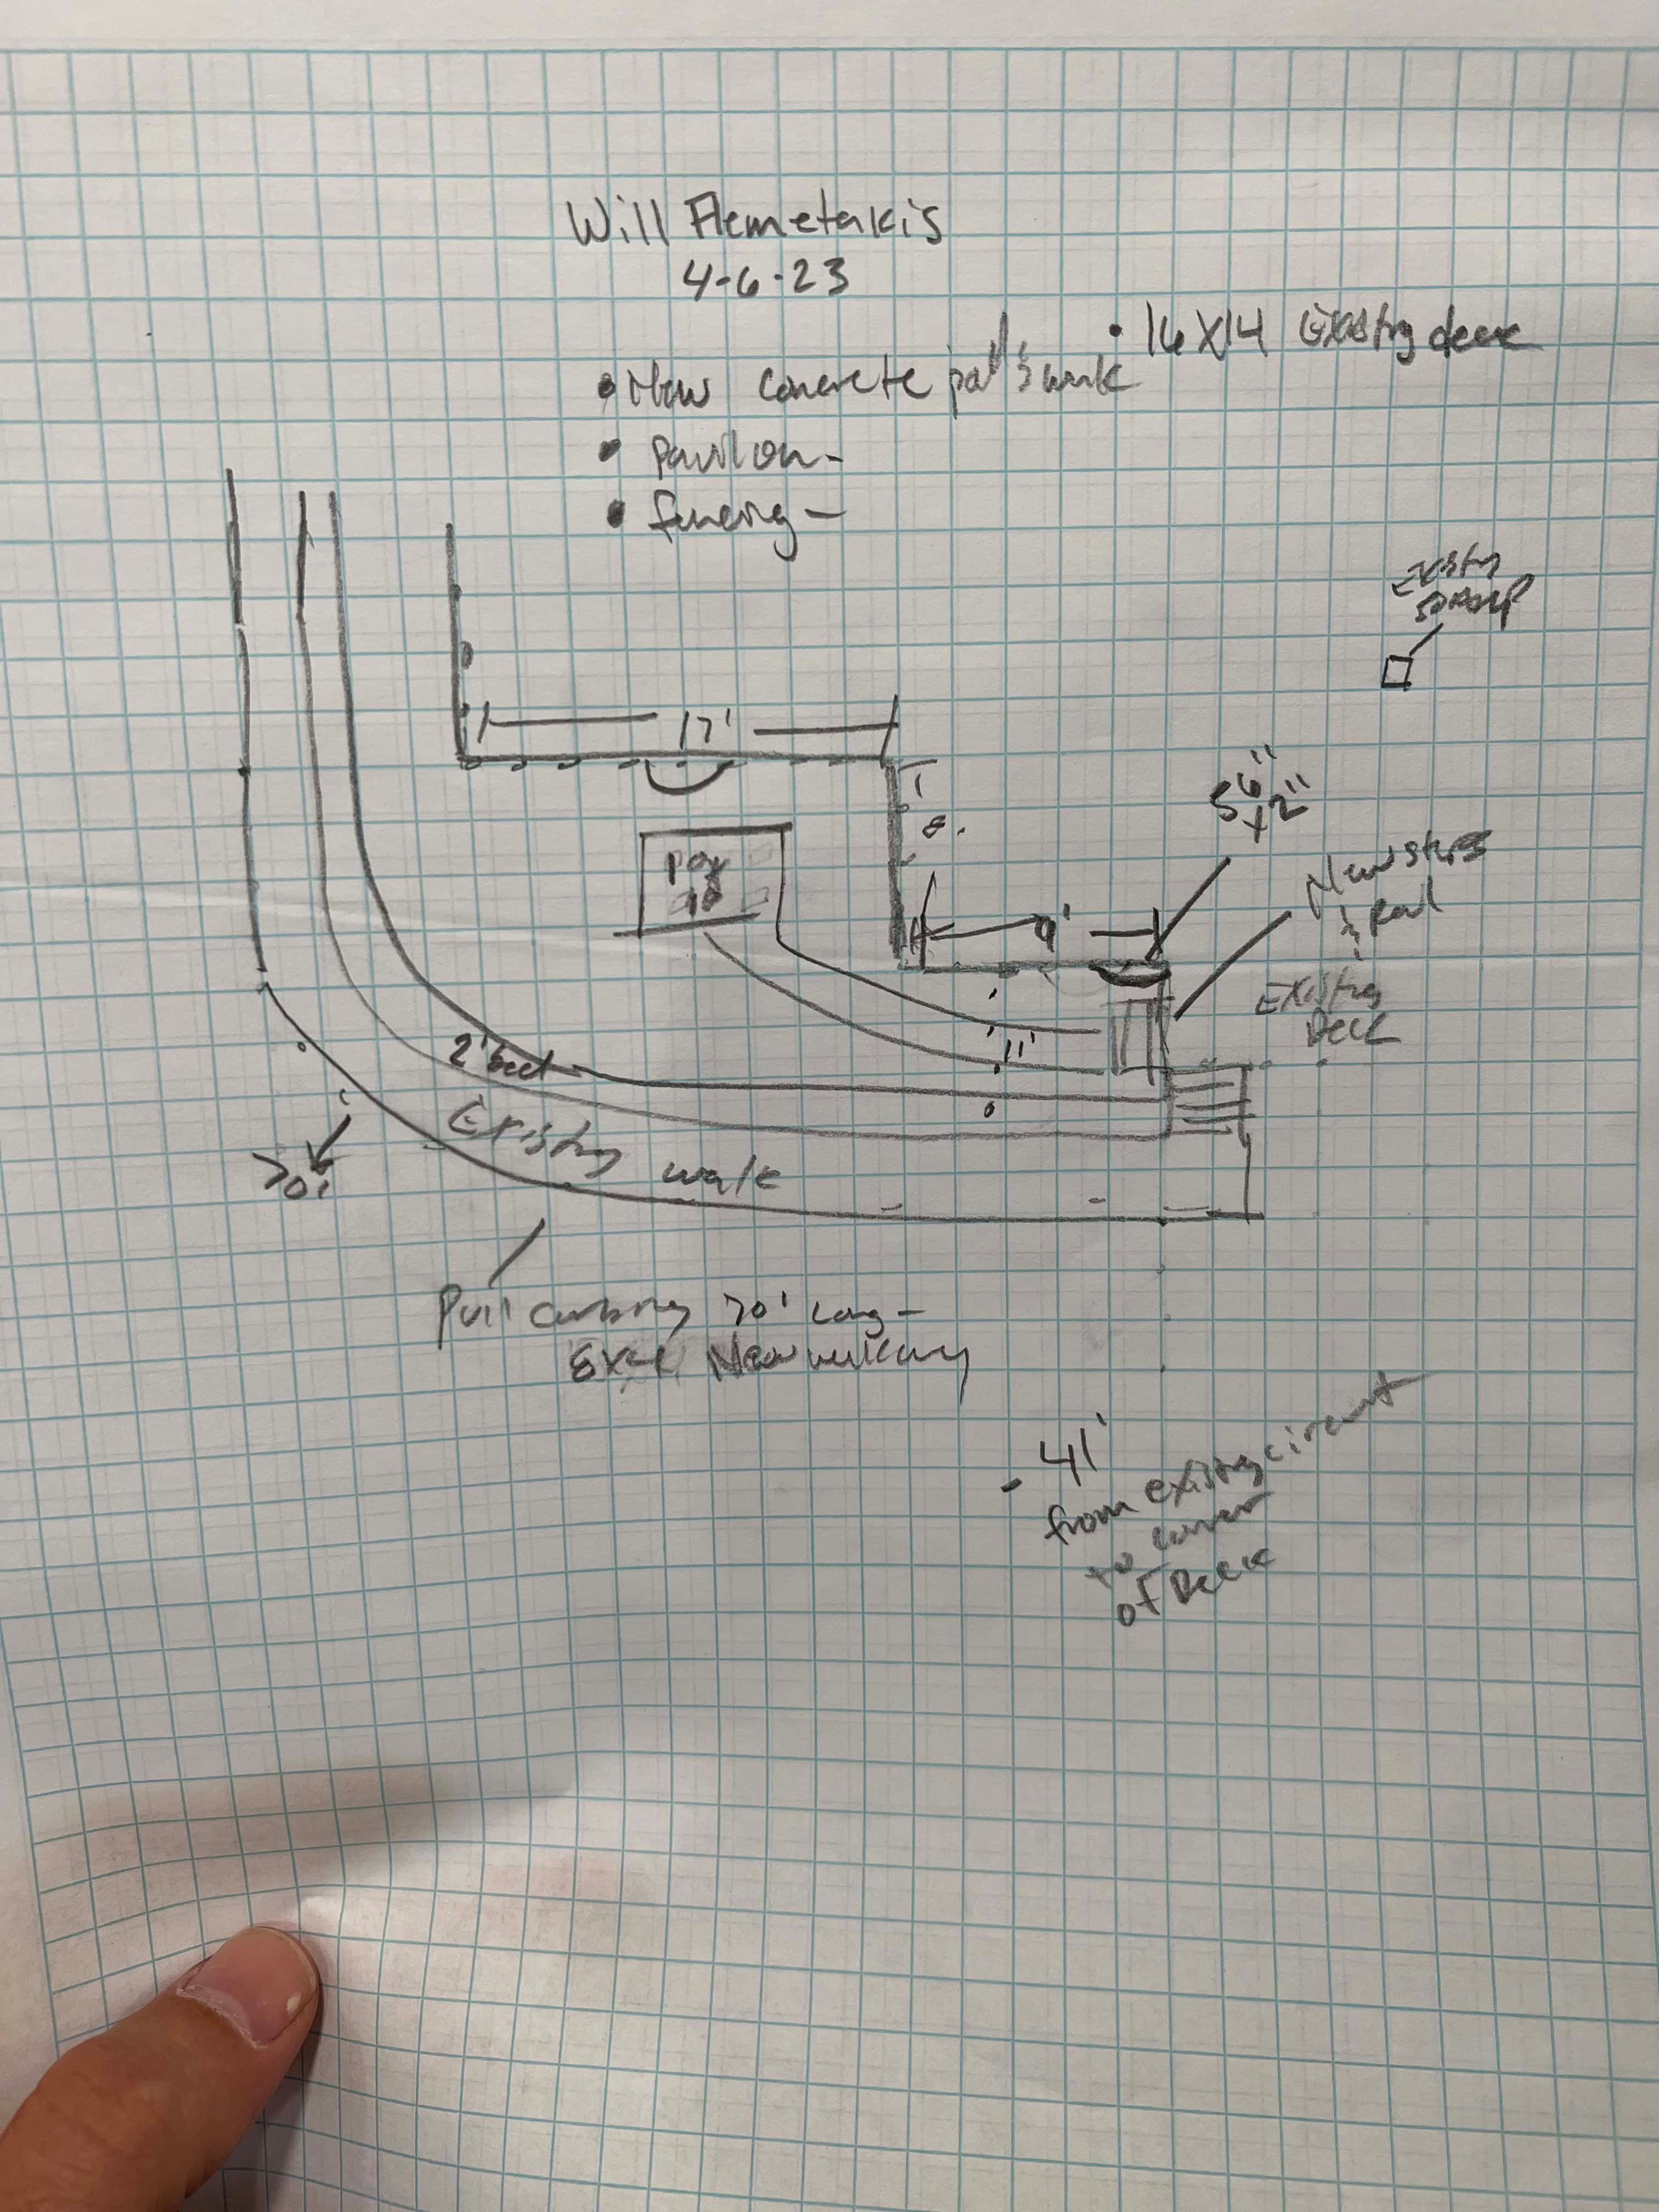 Will Flemetakis
4-6-23
• 16 X 14 Existing deck
• New concrete pad & walk
• pavilion -
• fencing -
Existing
17'
8'
56"
x2"
New steps
& Rail
9'
Existing
Deck
11'
2' bed
Existing walk
70'
Pull curbing 70' Long -
New walkway
- 41'
from existing circuit
to corner
of Deck